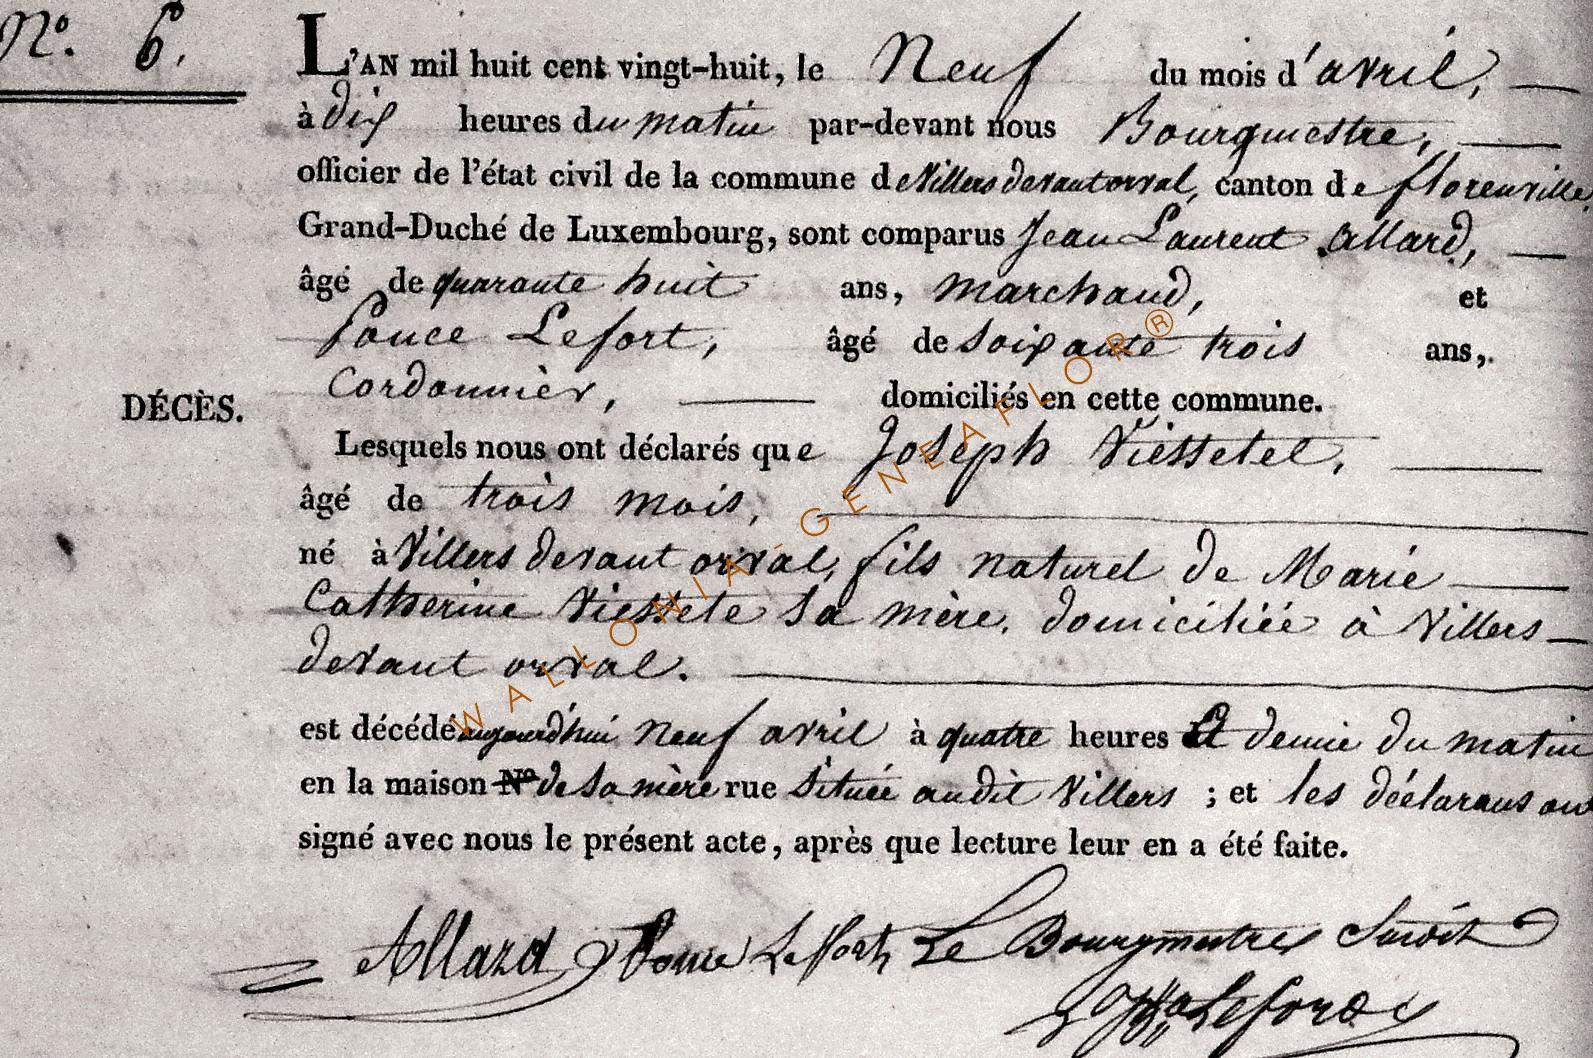 N.º 6.
L'AN mil huit cent vingt-huit, le Neuf du mois d'avril,
à dix heures du matin par-devant nous Bourquestre,
officier de l'état civil de la commune de Villers devant orval, canton de florenville,
Grand-Duché de Luxembourg, sont comparus Jean Laurent Allard,
âgé de quarante huit ans, marchand, et
Ponce Lefort, âgé de soixante trois ans,
Cordonnier, domiciliés en cette commune.
DÉCÈS.
Lesquels nous ont déclarés que Joseph Viessetel,
âgé de trois mois,
né à Villers devant orval, fils naturel de Marie
Catherine Viessete sa mère, domiciliée à Villers
devant orval.
est décédé aujourd'hui neuf avril à quatre heures et demie du matin
en la maison Nº de sa mère rue située audit Villers ; et les déclarans ont
signé avec nous le présent acte, après que lecture leur en a été faite.
Allard Ponce Leffort Le Bourgmestre
Lefort
WALLONIA - GENEAFLOR®